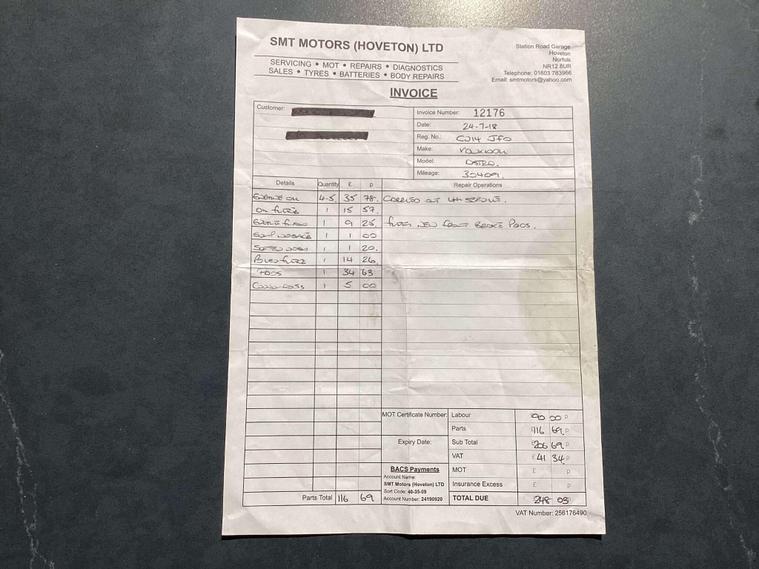 SMT MOTORS (HOVETON) LTD
SERVICING • MOT • REPAIRS • DIAGNOSTICS
SALES • TYRES • BATTERIES • BODY REPAIRS
Station Road Garage
Hoveton
Norfolk
NR12 8UR
Telephone: 01603 783966
Email: smtmotors@yahoo.com
INVOICE
Customer:
Invoice Number: 12176
Date: 24-7-18
Reg. No.: CJ14 JFO
Make: Vauxhall
Model: ASTRA.
Mileage: 30409.
Details Quantity £ p Repair Operations
ENGINE OIL 4-5 35 78. CARRIED OUT SERVICE.
OIL FILTER 1 15 57
1 9 25, FITTED NEW FRONT BRAKE PADS.
SUMP WASHER 1 1 00
SCREEN WASH 1 1 20.
POLLEN FILTER 1 14 26,
PADS 1 34 63
1 5 00
MOT Certificate Number: Labour 90 00 p
Parts 116 69 p
Expiry Date: Sub Total £206 69 p
VAT £41 34 p
BACS Payments
Account Name:
SMT Motors (Hoveton) LTD
Sort Code: 40-35-09
Account Number: 24190920
MOT £ p
Insurance Excess £ p
Parts Total 116 69
TOTAL DUE 248 03
VAT Number: 256176490